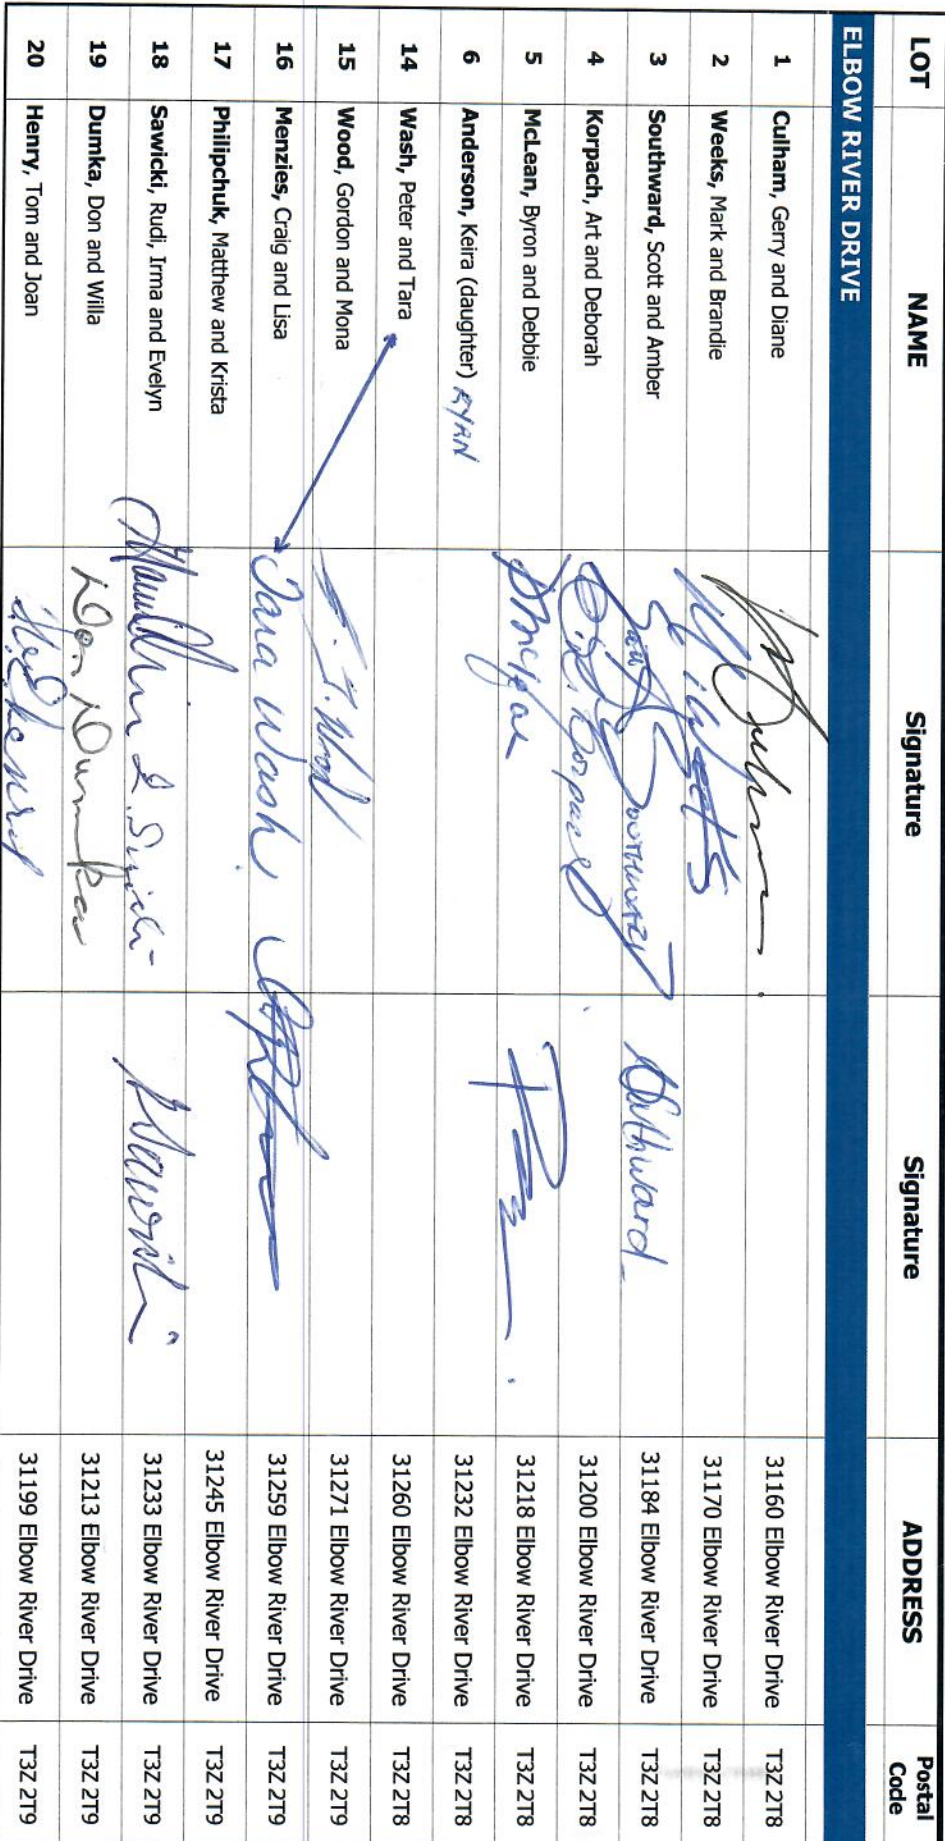 LOT NAME Signature Signature ADDRESS Postal Code
ELBOW RIVER DRIVE
1 Culham, Gerry and Diane 31160 Elbow River Drive T3Z 2T8
2 Weeks, Mark and Brandie 31170 Elbow River Drive T3Z 2T8
3 Southward, Scott and Amber Scott Southward Southward 31184 Elbow River Drive T3Z 2T8
4 Korpach, Art and Deborah 31200 Elbow River Drive T3Z 2T8
5 McLean, Byron and Debbie 31218 Elbow River Drive T3Z 2T8
6 Anderson, Keira (daughter) RYAN 31232 Elbow River Drive T3Z 2T8
14 Wash, Peter and Tara 31260 Elbow River Drive T3Z 2T8
15 Wood, Gordon and Mona 31271 Elbow River Drive T3Z 2T9
16 Menzies, Craig and Lisa Tara Wash 31259 Elbow River Drive T3Z 2T9
17 Philipchuk, Matthew and Krista 31245 Elbow River Drive T3Z 2T9
18 Sawicki, Rudi, Irma and Evelyn 31233 Elbow River Drive T3Z 2T9
19 Dumka, Don and Willa Don Dumka 31213 Elbow River Drive T3Z 2T9
20 Henry, Tom and Joan 31199 Elbow River Drive T3Z 2T9